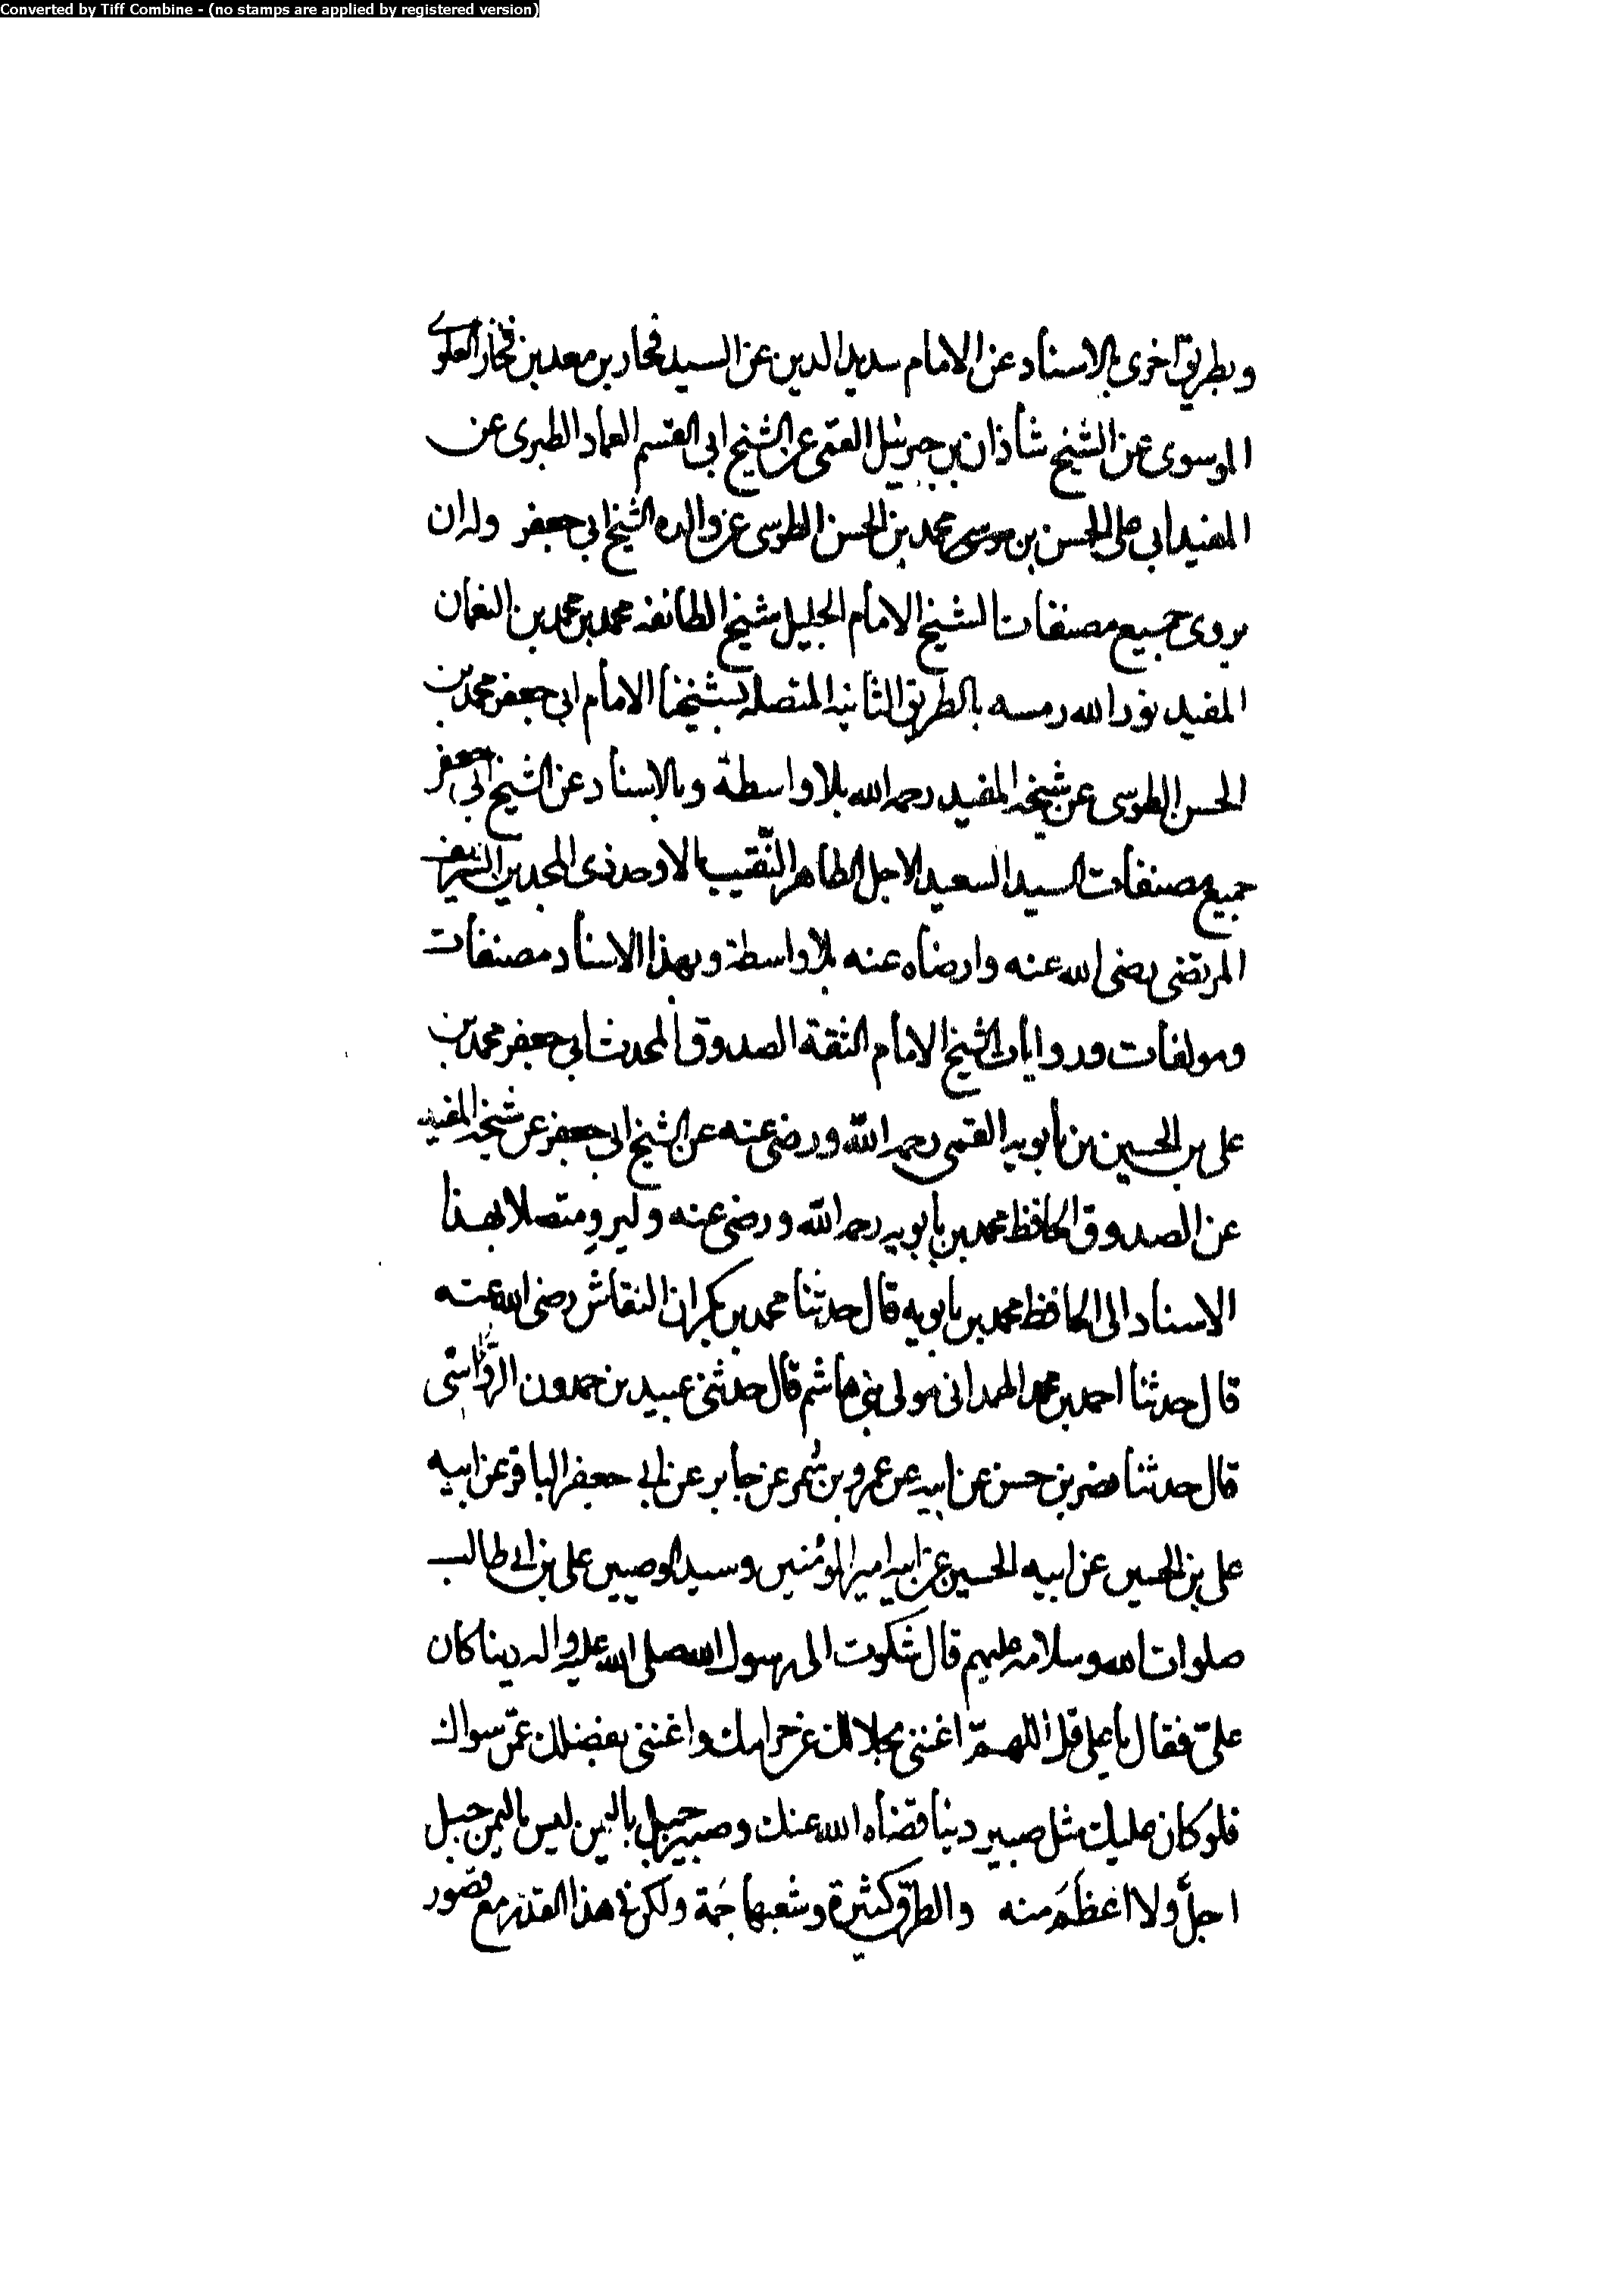 Converted by Tiff Combine - (no stamps are applied by registered version)
وبطريق اخرى بالاسناد عن الامام سديد الدين عن السيد فخار بن معد بن فخار العلوى
الموسوى عن الشيخ شاذان بن جبرئيل القمى عن الشيخ ابى القسم العماد الطبرى عن
المفيد ابى على الحسن بن محمد بن الحسن الطوسى عن والده الشيخ ابى جعفر وله ان
يروى جميع مصنفات الشيخ الامام الجليل شيخ الطائفه محمد بن محمد بن النعمان
المفيد نور الله رمسه بالطريق الثانيه المتصله بشيخنا الامام ابى جعفر محمد بن
الحسن الطوسى عن شيخه المفيد رحمه الله بلا واسطة وبالاسناد عن الشيخ ابى جعفر
جميع مصنفات السيد السعيد الاجل الطاهر النّقيب الاوحد ذى المجدين الشريف
المرتضى رضى الله عنه وارضاه عنه بلا واسطة وبهذا الاسناد مصنفات
ومولفات وروايات الشيخ الامام الثقة الصدوق المحدث ابى جعفر محمد بن
على بن الحسين بن بابويه القمى رحمه الله ورضى عنه عن الشيخ ابى جعفر عن شيخه المفيد
عن الصدوق الحافظ محمد بن بابويه رحمه الله ورضى عنه وليروِ متصلا بهذا
الاسناد الى الحافظ محمد بن بابويه قال حدثنا محمد بن بكران النقاش رضى الله عنه
قال حدثنا احمد بن محمد الهمدانى مولى بنى هاشم قال حدثنى عبيد بن حمدون الرّؤاسّى
قال حدثنا نصر بن حسن عن ابيه عن عمرو بن شمر عن جابر عن ابى جعفر الباقر عن ابيه
على بن الحسين عن ابيه الحسين عن ابيه امير المؤمنين وسيد الوصيين على بن ابى طالب
صلوات الله وسلامه عليهم قال شكوت الى رسول الله صلى الله عليه واله دينا كان
علىّ فقال يا على قل اللهمّ اغننى بحلالك عن حرامك واغننى بفضلك عمّن سواك
فلو كان عليك مثل صبير دينا قضاه الله عنك وصبير جبل باليمن ليس باليمن جبل
اجلّ ولا اعظَم منه والطرق كثيرة وشعبها جَمة ولكن فى هذا القدر مع قصور